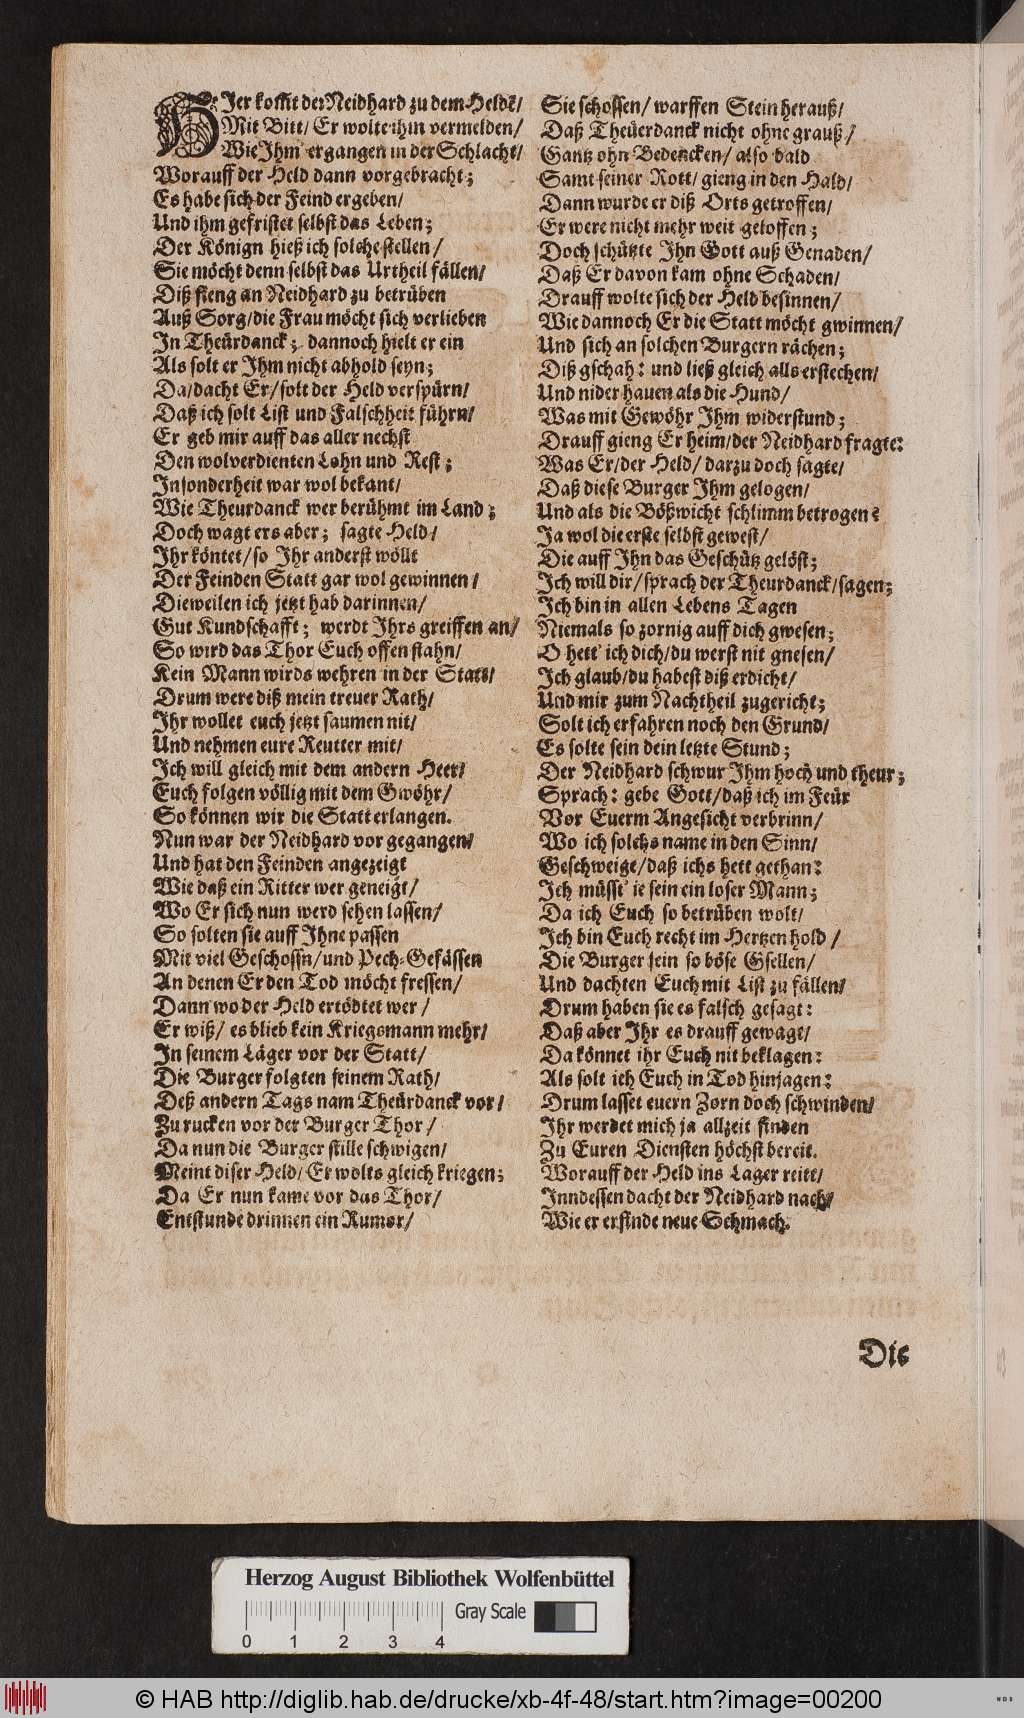 HIer kom̃t der Neidhard zu dem Heldẽ/
Mit Bitt/ Er wolte ihm vermelden/
Wie Ihm ergangen in der Schlacht/
Worauff der Held dann vorgebracht;
Es habe sich der Feind ergeben/
Und ihm gefristet selbst das Leben;
Der Könign hieß ich solche stellen/
Sie möcht denn selbst das Urtheil fällen/
Diß fieng an Neidhard zu betrüben
Auß Sorg/die Frau möcht sich verlieben
In Theürdanck; dannoch hielt er ein
Als solt er Ihm nicht abhold seyn;
Da/dacht Er/solt der Held verspürn/
Daß ich solt List und Falschheit führn/
Er geb mir auff das aller nechst
Den wolverdienten Lohn und Rest;
Insonderheit war wol bekant/
Wie Theurdanck wer berühmt im Land;
Doch wagt ers aber; sagte Held/
Ihr köntet/so Ihr anderst wöllt
Der Feinden Statt gar wol gewinnen/
Dieweilen ich jetzt hab darinnen/
Gut Kundschafft; werdt Ihrs greiffen an/
So wird das Thor Euch offen stahn/
Kein Mann wirds wehren in der Statt/
Drum were diß mein treuer Rath/
Ihr wollet euch jetzt saumen nit/
Und nehmen eure Reutter mit/
Ich will gleich mit dem andern Heer/
Euch folgen völlig mit dem Gwöhr/
So können wir die Statt erlangen.
Nun war der Neidhard vor gegangen/
Und hat den Feinden angezeigt
Wie daß ein Ritter wer geneigt/
Wo Er sich nun werd sehen lassen/
So solten sie auff Ihne passen
Mit viel Geschossn/und Pech-Gefässen
An denen Er den Tod möcht fressen/
Dann wo der Held ertödtet wer/
Er wiß/ es blieb kein Kriegsmann mehr/
In seinem Läger vor der Statt/
Die Burger folgten seinem Rath/
Deß andern Tags nam Theürdanck vor/
Zu rucken vor der Burger Thor/
Da nun die Burger stille schwigen/
Meint diser Held/ Er wolts gleich kriegen;
Da Er nun kame vor das Thor/
Entstunde drinnen ein Rumor/
Sie schossen/ warffen Stein herauß/
Daß Theüerdanck nicht ohne grauß/
Gantz ohn Bedencken/ also bald
Samt seiner Rott/ gieng in den Hald/
Dann wurde er diß Orts getroffen/
Er were nicht mehr weit geloffen;
Doch schützte Ihn Gott auß Genaden/
Daß Er davon kam ohne Schaden/
Drauff wolte sich der Held besinnen/
Wie dannoch Er die Statt möcht gwinnen/
Und sich an solchen Burgern rächen;
Diß gschah: und ließ gleich alls erstechen/
Und nider hauen als die Hund/
Was mit Gewöhr Ihm widerstund;
Drauff gieng Er heim/der Neidhard fragte:
Was Er/der Held/ darzu doch sagte/
Daß diese Burger Ihm gelogen/
Und als die Bößwicht schlimm betrogen?
Ja wol die erste selbst gewest/
Die auff Ihn das Geschütz gelöst;
Ich will dir/sprach der Theurdanck/sagen;
Ich bin in allen Lebens Tagen
Niemals so zornig auff dich gwesen;
O hett' ich dich/du werst nit gnesen/
Ich glaub/du habest diß erdicht/
Und mir zum Nachtheil zugericht;
Solt ich erfahren noch den Grund/
Es solte sein dein letzte Stund;
Der Neidhard schwur Ihm hoch und theur;
Sprach: gebe Gott/daß ich im Feür
Vor Euerm Angesicht verbrinn/
Wo ich solchs name in den Sinn/
Geschweige/daß ichs hett gethan:
Ich müsst' ie sein ein loser Mann;
Da ich Euch so betrüben wolt/
Ich bin Euch recht im Hertzen hold/
Die Burger sein so böse Gsellen/
Und dachten Euch mit List zu fällen/
Drum haben sie es falsch gesagt:
Daß aber Ihr es drauff gewagt/
Da könnet ihr Euch nit beklagen:
Als solt ich Euch in Tod hinjagen:
Drum lasset euern Zorn doch schwinden/
Ihr werdet mich ja allzeit finden
Zu Euren Diensten höchst bereit.
Worauff der Held ins Lager reitt/
Inndessen dacht der Neidhard nach/
Wie er erfinde neue Schmach.
Die
Herzog August Bibliothek Wolfenbüttel
Gray Scale
0 1 2 3 4
© HAB http://diglib.hab.de/drucke/xb-4f-48/start.htm?image=00200